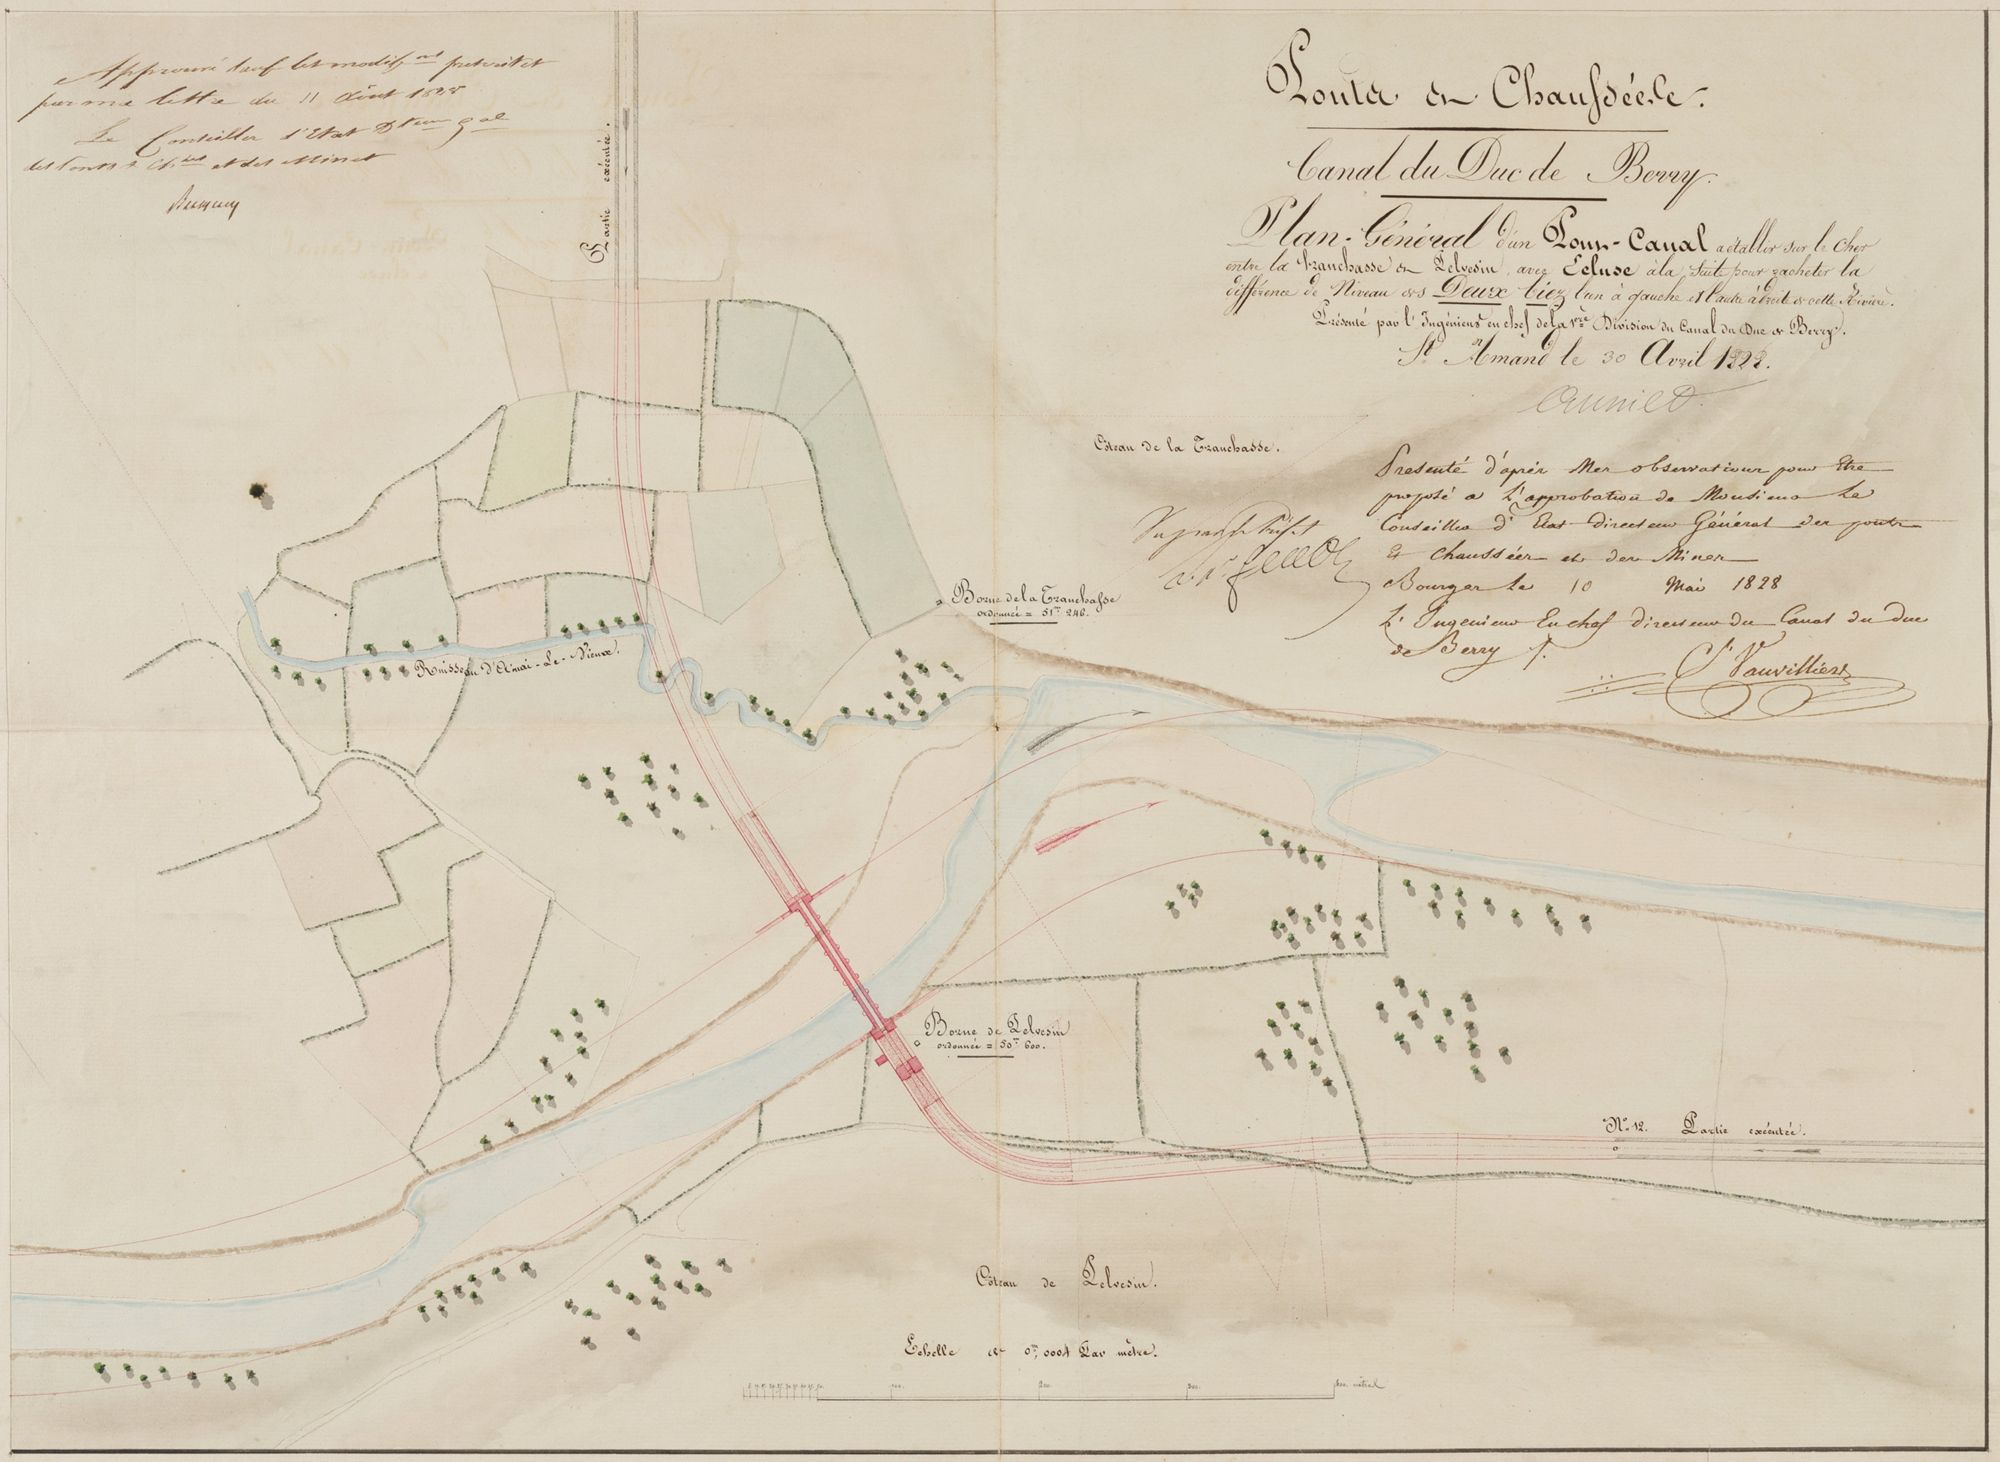 Approuvé sauf les modif.ons prescrites
par ma lettre du 11 Août 1828
Le Conseiller d'Etat D.teur g.al
des Ponts & Ch.ées et des Mines
Becquey
Partie exécutée.
Ponts et Chaussées.
Canal du Duc de Berry.
Plan-Général d'un Pont-Canal à établir sur le Cher
entre la Tranchasse et Pelvesin, avec Ecluse à la suite pour racheter la
différence de Niveau des Deux biez l'un à gauche et l'autre à droite de cette Rivière.
Présenté par l'Ingénieur en chef de la 1ère Division du Canal du Duc de Berry.
St. Amand le 30 Avril 1828.
Côteau de la Tranchasse.
Presenté d'après Mes observations pour Etre
proposé a L'approbation de Monsieur Le
Conseiller d'Etat directeur Général des ponts
Et chaussées et des Mines
Bourges Le 10 Mai 1828
L'Ingenieur En chef directeur du Canal du duc
de Berry
Vauvilliers
Borne de la Tranchasse
ordonnée = 51m 246.
Ruisseau d'Ainai-Le-Vieux.
Borne de Pelvesin
ordonnée = 50m 600.
No. 12. Partie exécutée.
Côteau de Pelvesin.
Echelle de 0m,0004 Par mètre.
100. 200. 300.